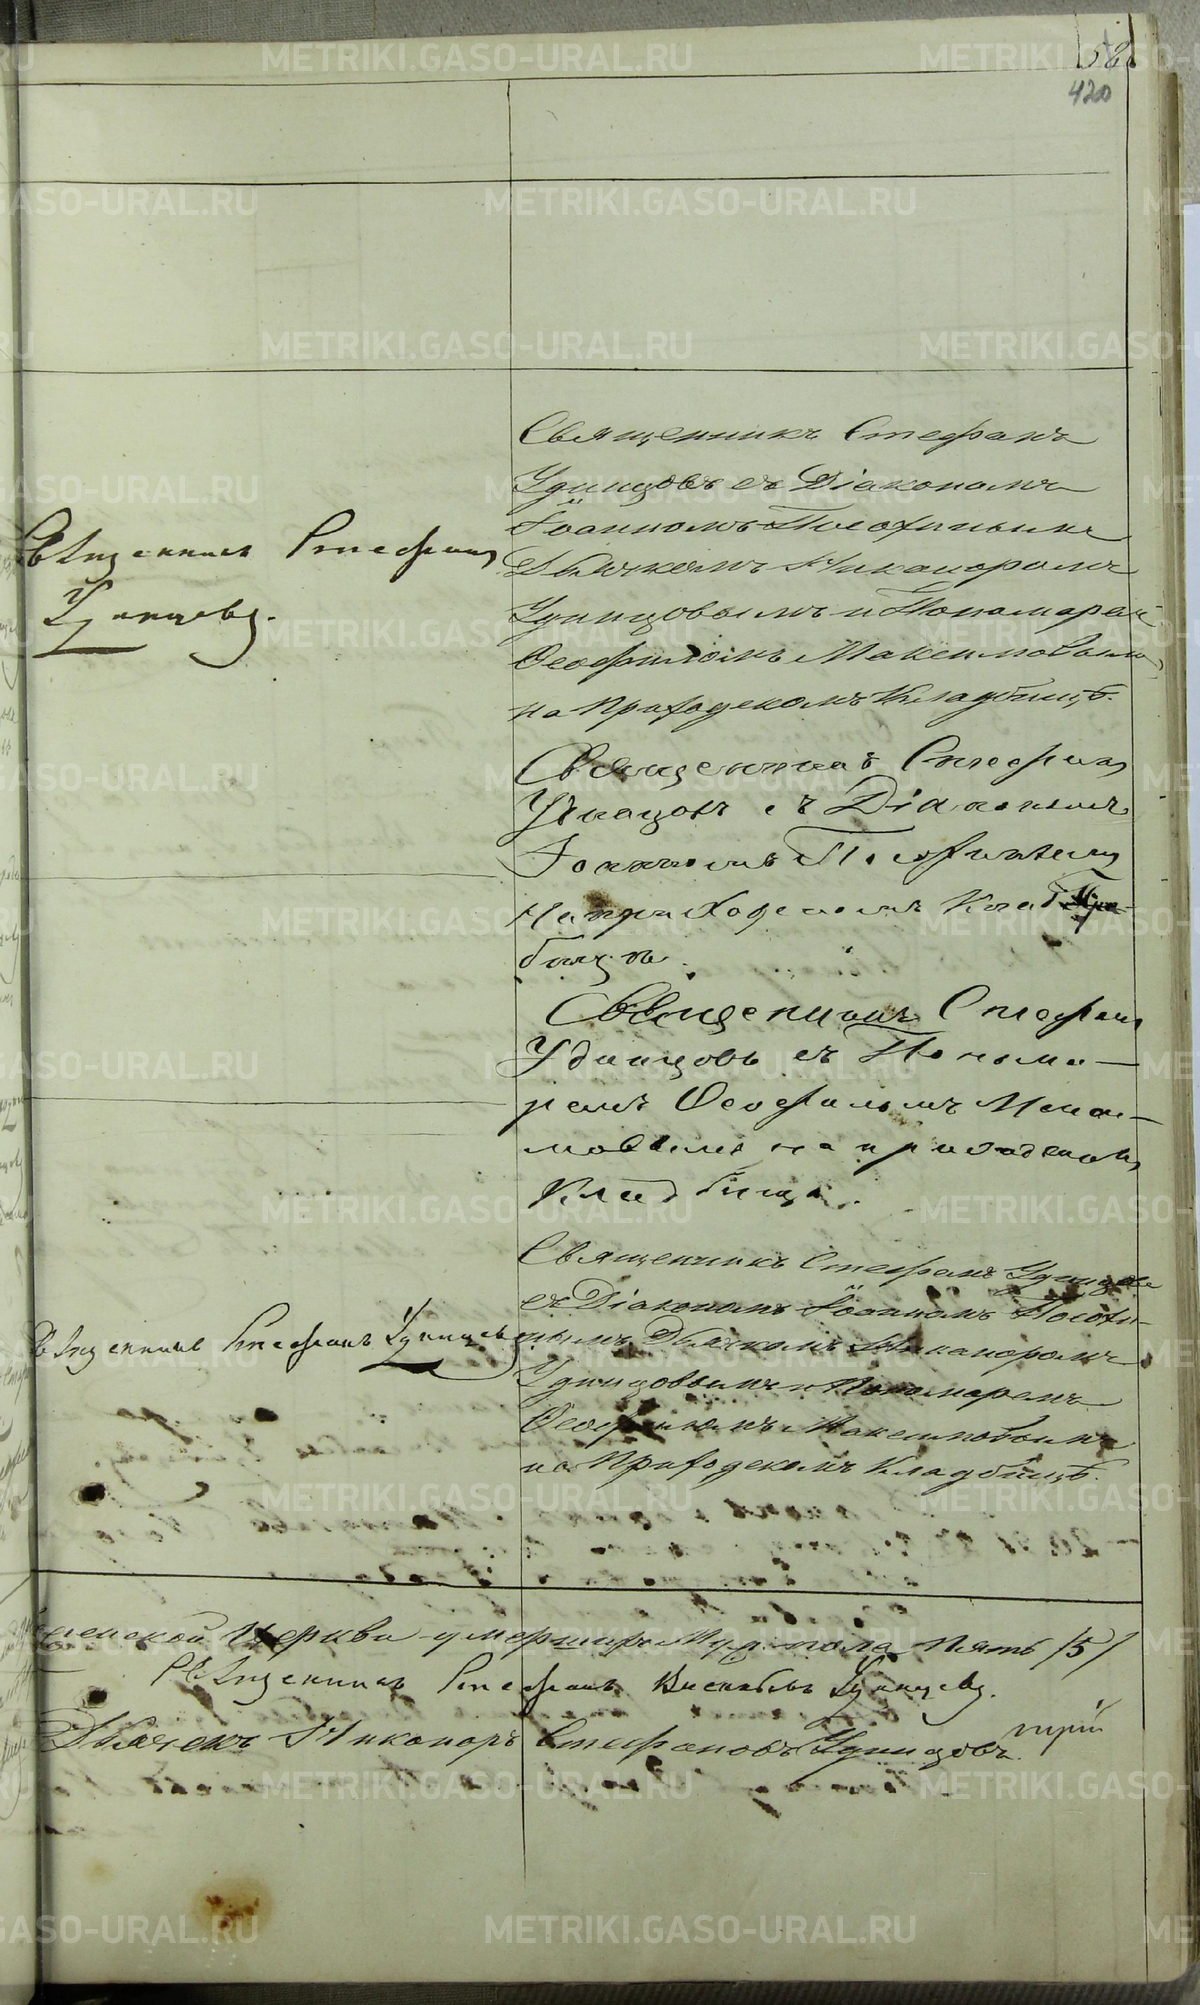 58
420
Священникъ Стефанъ
Удинцовъ съ Діакономъ
Іоанномъ
Дьячкомъ Никаноромъ
Удинцовымъ и Пономаремъ
Ѳеофиломъ Максимовымъ
на Приходскомъ Кладбищѣ.
Священникъ Стефанъ
Удинцовъ.
Священникъ Стефанъ
Удинцовъ съ Діакономъ
Іоанномъ
На приходскомъ Клад
бищѣ.
Священникъ Стефанъ
Удинцовъ съ Понома–
ремъ Ѳеофиломъ Макси–
мовымъ на приходскомъ
Кладбищѣ.
Священникъ Стефанъ Удинцовъ
съ Діакономъ Іоанномъ
Дьячкомъ Никаноромъ
Удинцовымъ и Пономаремъ
Ѳеофиломъ Максимовымъ
на Приходскомъ Кладбищѣ.
Священникъ Стефанъ Удинцовъ
Церкви умершихъ Муж. пола Пять /5/
Священникъ Стефанъ Удинцовъ.
Дьячекъ Никаноръ Стефановъ Удинцовъ
METRIKI.GASO-URAL.RU